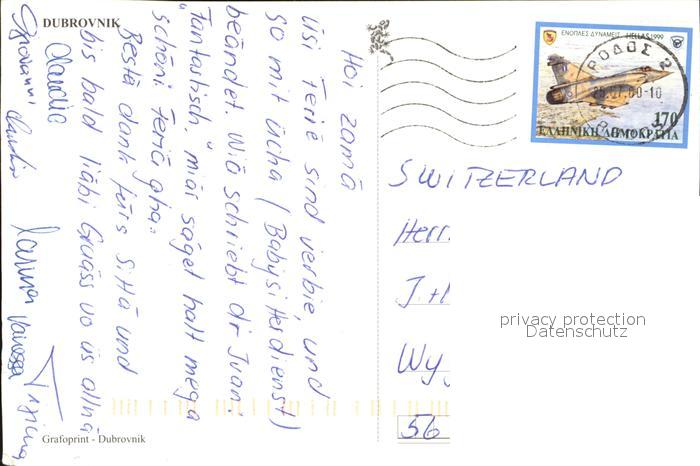 DUBROVNIK
Hoi zämä
Üsi Feriè sind verbie, und
so mit ücha (Babysitterdienst)
beändet. Wiä schriebt dr Ivan:
"Fantastisch", miär säget halt mega
schöni Feriä gha.
Bestä dank fürs Sittä und
bis bald liäbi Grüäss vo üs allnä
Claudia
Giovanni
Carina
Vanessa
ΕΝΟΠΛΕΣ ΔΥΝΑΜΕΙΣ HELLAS 1999
ΡΟΔΟΣ 2
170
ΕΛΛΗΝΙΚΗ ΔΗΜΟΚΡΑΤΙΑ
SWITZERLAND
Herr.
J.+
Wy
56
privacy protection
Datenschutz
Grafoprint - Dubrovnik